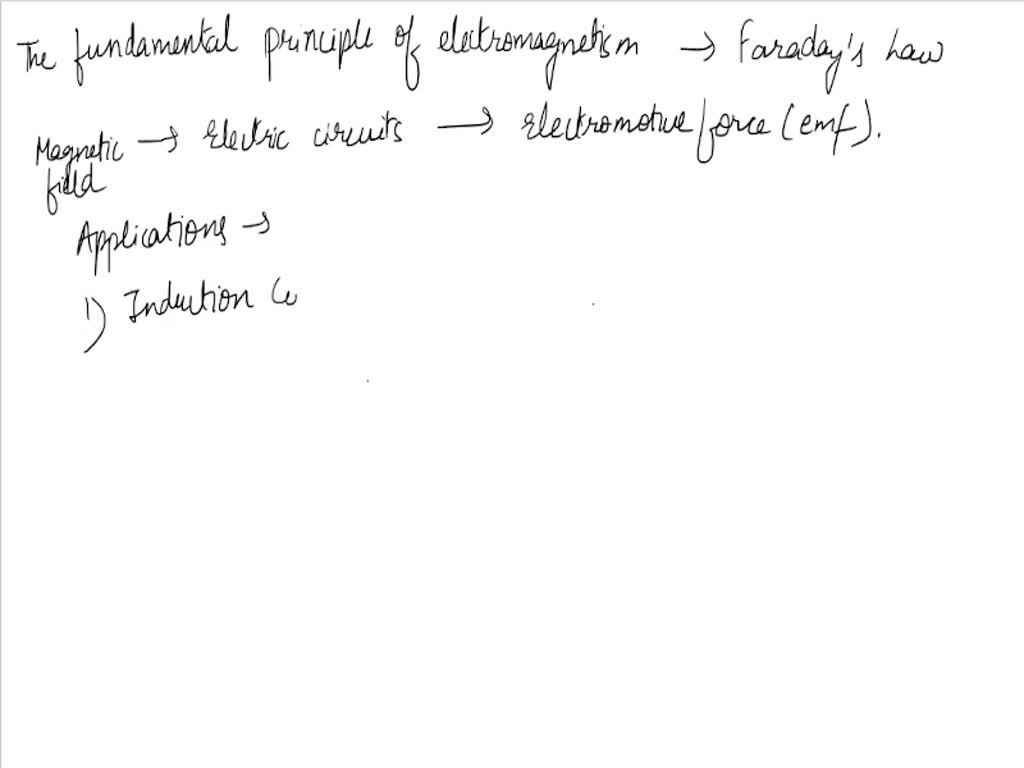 The fundamental principle of electromagnetism → Faraday's Law
Magnetic field → Electric circuits → Electromotive force (emf).
Applications →
1) Induction Co